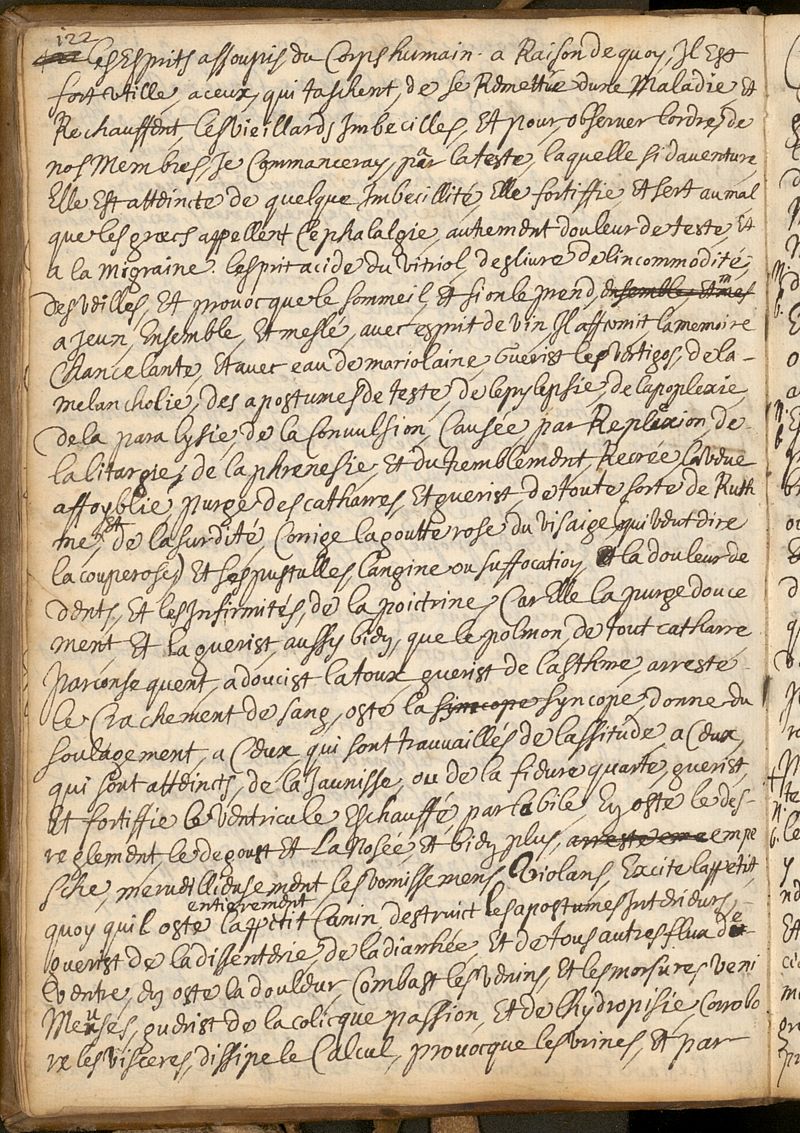 122
les Esprits assoupis du Corps humain. a Raison de quoy, Il Est
fort Utille, a ceux, qui taschent, de se Remettre dune Maladie, Et
Rechauffent les vieillards Imbecilles, Et pour, observer lordre, de
nos Membres, Je Commanceray, par la teste, laquelle si daventure
Elle Est atteincte de quelque Imbecillité, Elle fortiffie, Et sert au mal
que les grecs appellent Cephalalgie, autrement douleur de teste, Et
a la migraine. lesprit acide du vitriol, desliure de lincommodité,
des veilles, Et provocque le sommeil, Et si on le prend, ensemble Et mes
a Jeun, Ensemble, Et meslé, avec esprit de vin, Il affermit la memoire
Chancelante, Et avec eau de mariolaine, Guerist les vertigos, de la -
melancholie, des apostumes de teste, de lepylepsie, de lapoplexie,
de la paralysie, de la Convulsion, Causée par Replexion, de
la litargie, de la phrenesie, Et du tremblement, Recrée la veue
affoyblie, purge des catharres, Et guerist de toute sorte de Ruth
me, Et de la surdité, Corrige la goutte rose du visaige, qui veut dire
la couperose) Et ses pustulles, langine ou suffocation, Et la douleur de
dents, Et les Infirmités, de la poictrine, Car Elle la purge douce
ment Et la guerist, aussy bien, que le polmon de tout catharre
par consequent, adoucist la toux, guerist de lasthme, arreste -
le Crachement de sang, oste la syncope syncope, donne du
soulagement, a Ceux qui sont travvaillés de lassitude, a Ceux,
qui sont atteincts, de la Jaunisse, ou de la fievre quarte, guerist,
Et fortiffie le ventricule Eschauffé par la bile, En oste le des-
reglement, le degoust Et La Nosée, Et bien plus, arreste empe
sche, merveilleusement les vomissemens Violans, Excite lappetit,
quoy quil oste entierement lappetit Canin, destruict les apostumes Interieurs,
guerist de la dissenterie, de la diarrhée, Et de tous autres flux de
Ventre, En oste la douleur, Combast les venins, Et les morsures veni
Meuses, guerist de la colicque passion, Et de lhydropisie, Corrobo
re les visceres, dissipe le Calcul, provocque les urines, Et par